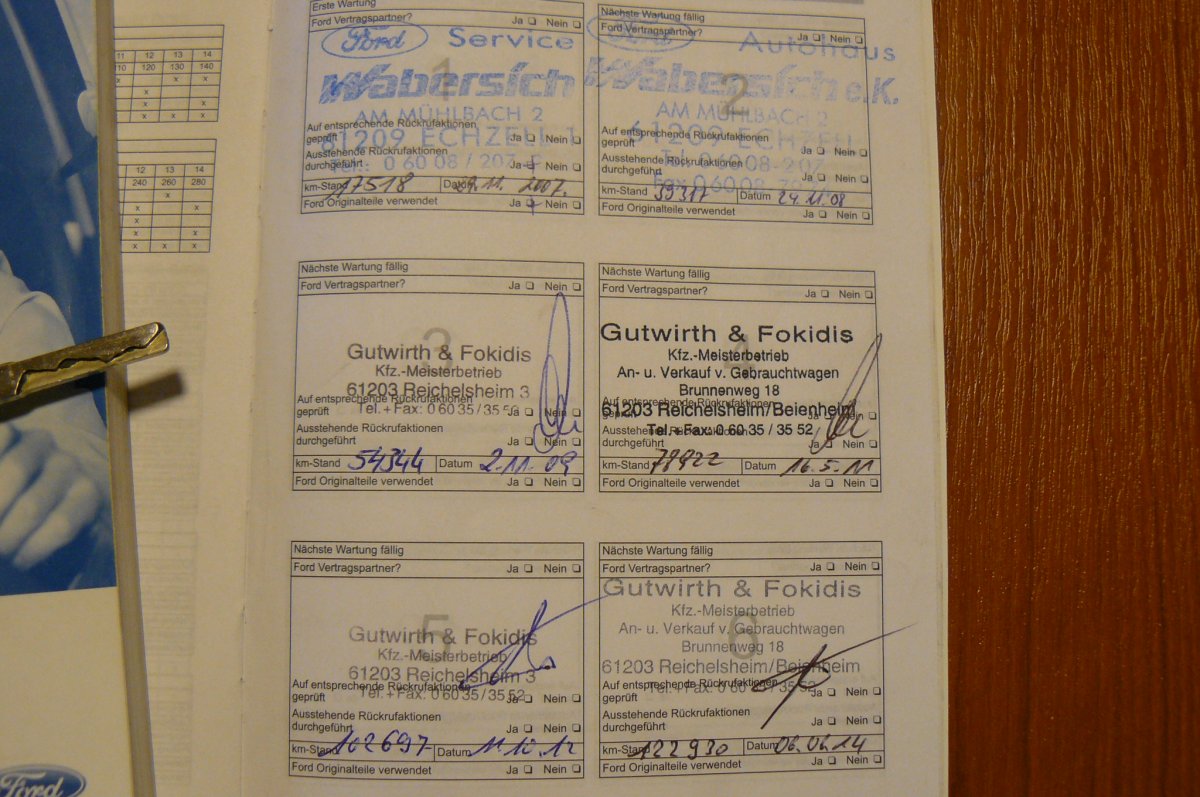 11 12 13 14
110 120 130 140
x x x
x
x x
x x x
12 13 14
240 260 280
x
x x
x
x x
x x x
Ford
Erste Wartung
Ford Vertragspartner? Ja Nein
Ford Service
1
Wabersich
AM MÜHLBACH 2
Auf entsprechende Rückrufaktionen
geprüft Ja Nein
61209 ECHZELL 1
Ausstehende Rückrufaktionen
durchgeführt Ja Nein
km-Stand 17518 Datum 29.11.2007.
Ford Originalteile verwendet Ja Nein
Nächste Wartung fällig
Ford Vertragspartner? Ja Nein
Ford Autohaus
2
Wabersich e.K.
AM MÜHLBACH 2
Auf entsprechende Rückrufaktionen
geprüft Ja Nein
61209 ECHZELL
Ausstehende Rückrufaktionen
durchgeführt Ja Nein
km-Stand 39317 Datum 24.11.08
Ford Originalteile verwendet Ja Nein
Nächste Wartung fällig
Ford Vertragspartner? Ja Nein
3
Gutwirth & Fokidis
Kfz.-Meisterbetrieb
61203 Reichelsheim 3
Auf entsprechende Rückrufaktionen
geprüft Ja Nein
Tel.+Fax: 0 60 35 / 35 52
Ausstehende Rückrufaktionen
durchgeführt Ja Nein
km-Stand 54344 Datum 2.11.09
Ford Originalteile verwendet Ja Nein
Nächste Wartung fällig
Ford Vertragspartner? Ja Nein
4
Gutwirth & Fokidis
Kfz.-Meisterbetrieb
An- u. Verkauf v. Gebrauchtwagen
Brunnenweg 18
Auf entsprechende Rückrufaktionen
geprüft Ja Nein
61203 Reichelsheim/Beienheim
Tel.+Fax: 0 60 35 / 35 52
Ausstehende Rückrufaktionen
durchgeführt Ja Nein
km-Stand 78922 Datum 16.5.11
Ford Originalteile verwendet Ja Nein
Nächste Wartung fällig
Ford Vertragspartner? Ja Nein
5
Gutwirth & Fokidis
Kfz.-Meisterbetrieb
61203 Reichelsheim 3
Auf entsprechende Rückrufaktionen
geprüft Ja Nein
Tel.+Fax: 0 60 35 / 35 52
Ausstehende Rückrufaktionen
durchgeführt Ja Nein
km-Stand 102697 Datum 11.10.12
Ford Originalteile verwendet Ja Nein
Nächste Wartung fällig
Ford Vertragspartner? Ja Nein
Gutwirth & Fokidis
Kfz.-Meisterbetrieb
An- u. Verkauf v. Gebrauchtwagen
6
Brunnenweg 18
61203 Reichelsheim/Beienheim
Auf entsprechende Rückrufaktionen
geprüft Ja Nein
Tel.+Fax: 0 60 35 / 35 52
Ausstehende Rückrufaktionen
durchgeführt Ja Nein
km-Stand 122930 Datum 06.06.14
Ford Originalteile verwendet Ja Nein